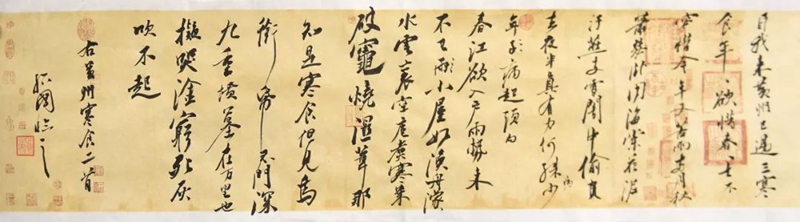 自我來黃州已過三寒
食年〻欲惜春〻去不
容惜今年又苦雨兩月秋
蕭瑟卧聞海棠花泥
汙燕支雪闇中偷負
去夜半真有力何殊少
年子病起頭白
春江欲入戶雨勢來
不已雨小屋如漁舟濛〻
水雲裏空庖煮寒菜
破竈燒濕葦那
知是寒食但見烏
銜帋君門深
九重墳墓在万里也
擬哭塗窮死灰
吹不起
右黃州寒食二首
臨之